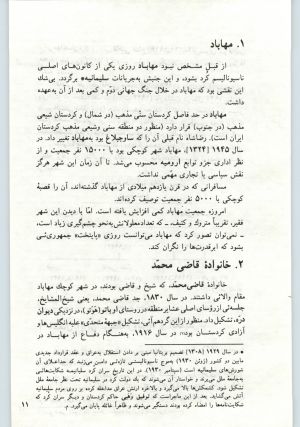 ۱. مهاباد
از قبل مشخص نبود مهاباد روزی یکی از کانون‌های اصلی
ناسیونالیسم کرد بشود، و این جنبش به‌جریانات سلیمانیه* برگردد. بی‌شک
این نقشی بود که مهاباد در خلال جنگ جهانی دوم و کمی بعد از آن به‌عهده
داشت.
مهاباد در حد فاصل کردستان سنّی مذهب (در شمال) و کردستان شیعی
مذهب (در جنوب) قرار دارد (منظور دو منطقه سنی وشیعی مذهب کردستان
ایران است). رضاشاه نام قبلی آن را که ساوجبلاغ بود به‌مهاباد تغییر داد. در
سال ۱۹۴۵ [۱۳۲۴]، مهاباد شهر کوچکی بود با ۱۵۰۰۰ نفر جمعیت و از
نظر اداری جزو توابع ارومیه محسوب می‌شد. تا آن زمان این شهر هرگز
نقش سیاسی یا تجاری مهمّی نداشت.
مسافرانی که در قرن یازدهم میلادی از مهاباد گذشته‌اند، آن را قصبهٔ
کوچکی با ۵۰۰۰ نفر جمعیت توصیف کرده‌اند.
امروزه جمعیت مهاباد کمی افزایش یافته است. امّا با دیدن این شهر
فقیر، تقریباً متروک و کثیف، ـ که تعداد معلولانش به‌نحو چشم‌گیری زیاد است،
ـ نمی‌توان تصور کرد که مهاباد می‌توانست روزی «پایتخت» جمهوری‌ئی
بشود که ابرقدرت‌ها را نگران کند.
۲. خانوادهٔ قاضی محمّد
خانوادهٔ قاضی‌محمّد، که شیخ و قاضی بودند، در شهر کوچک مهاباد
مقام والائی داشتند. در سال ۱۸۳۰، جد قاضی محمد، یعنی شیخ‌المشایخ،
جلسه‌ئی از رؤسای اصلی عشایر منطقه در روستای او باتو (هوتو)، در نزدیکی دیوان
دره، تشکیل داد. منظور از این گردهم‌آئی، تشکیل «جبهه متحدی» علیه انگلیس‌ها و
آزادی کردستان بود در سال ۱۹۱۶، به‌هنگام دفاع از مهاباد در
* در سال ۱۹۲۹ [۱۳۰۸] تصمیم بریتانیا مبنی بر دادن استقلال به‌عراق و عقد قرارداد جدیدی
۱۱